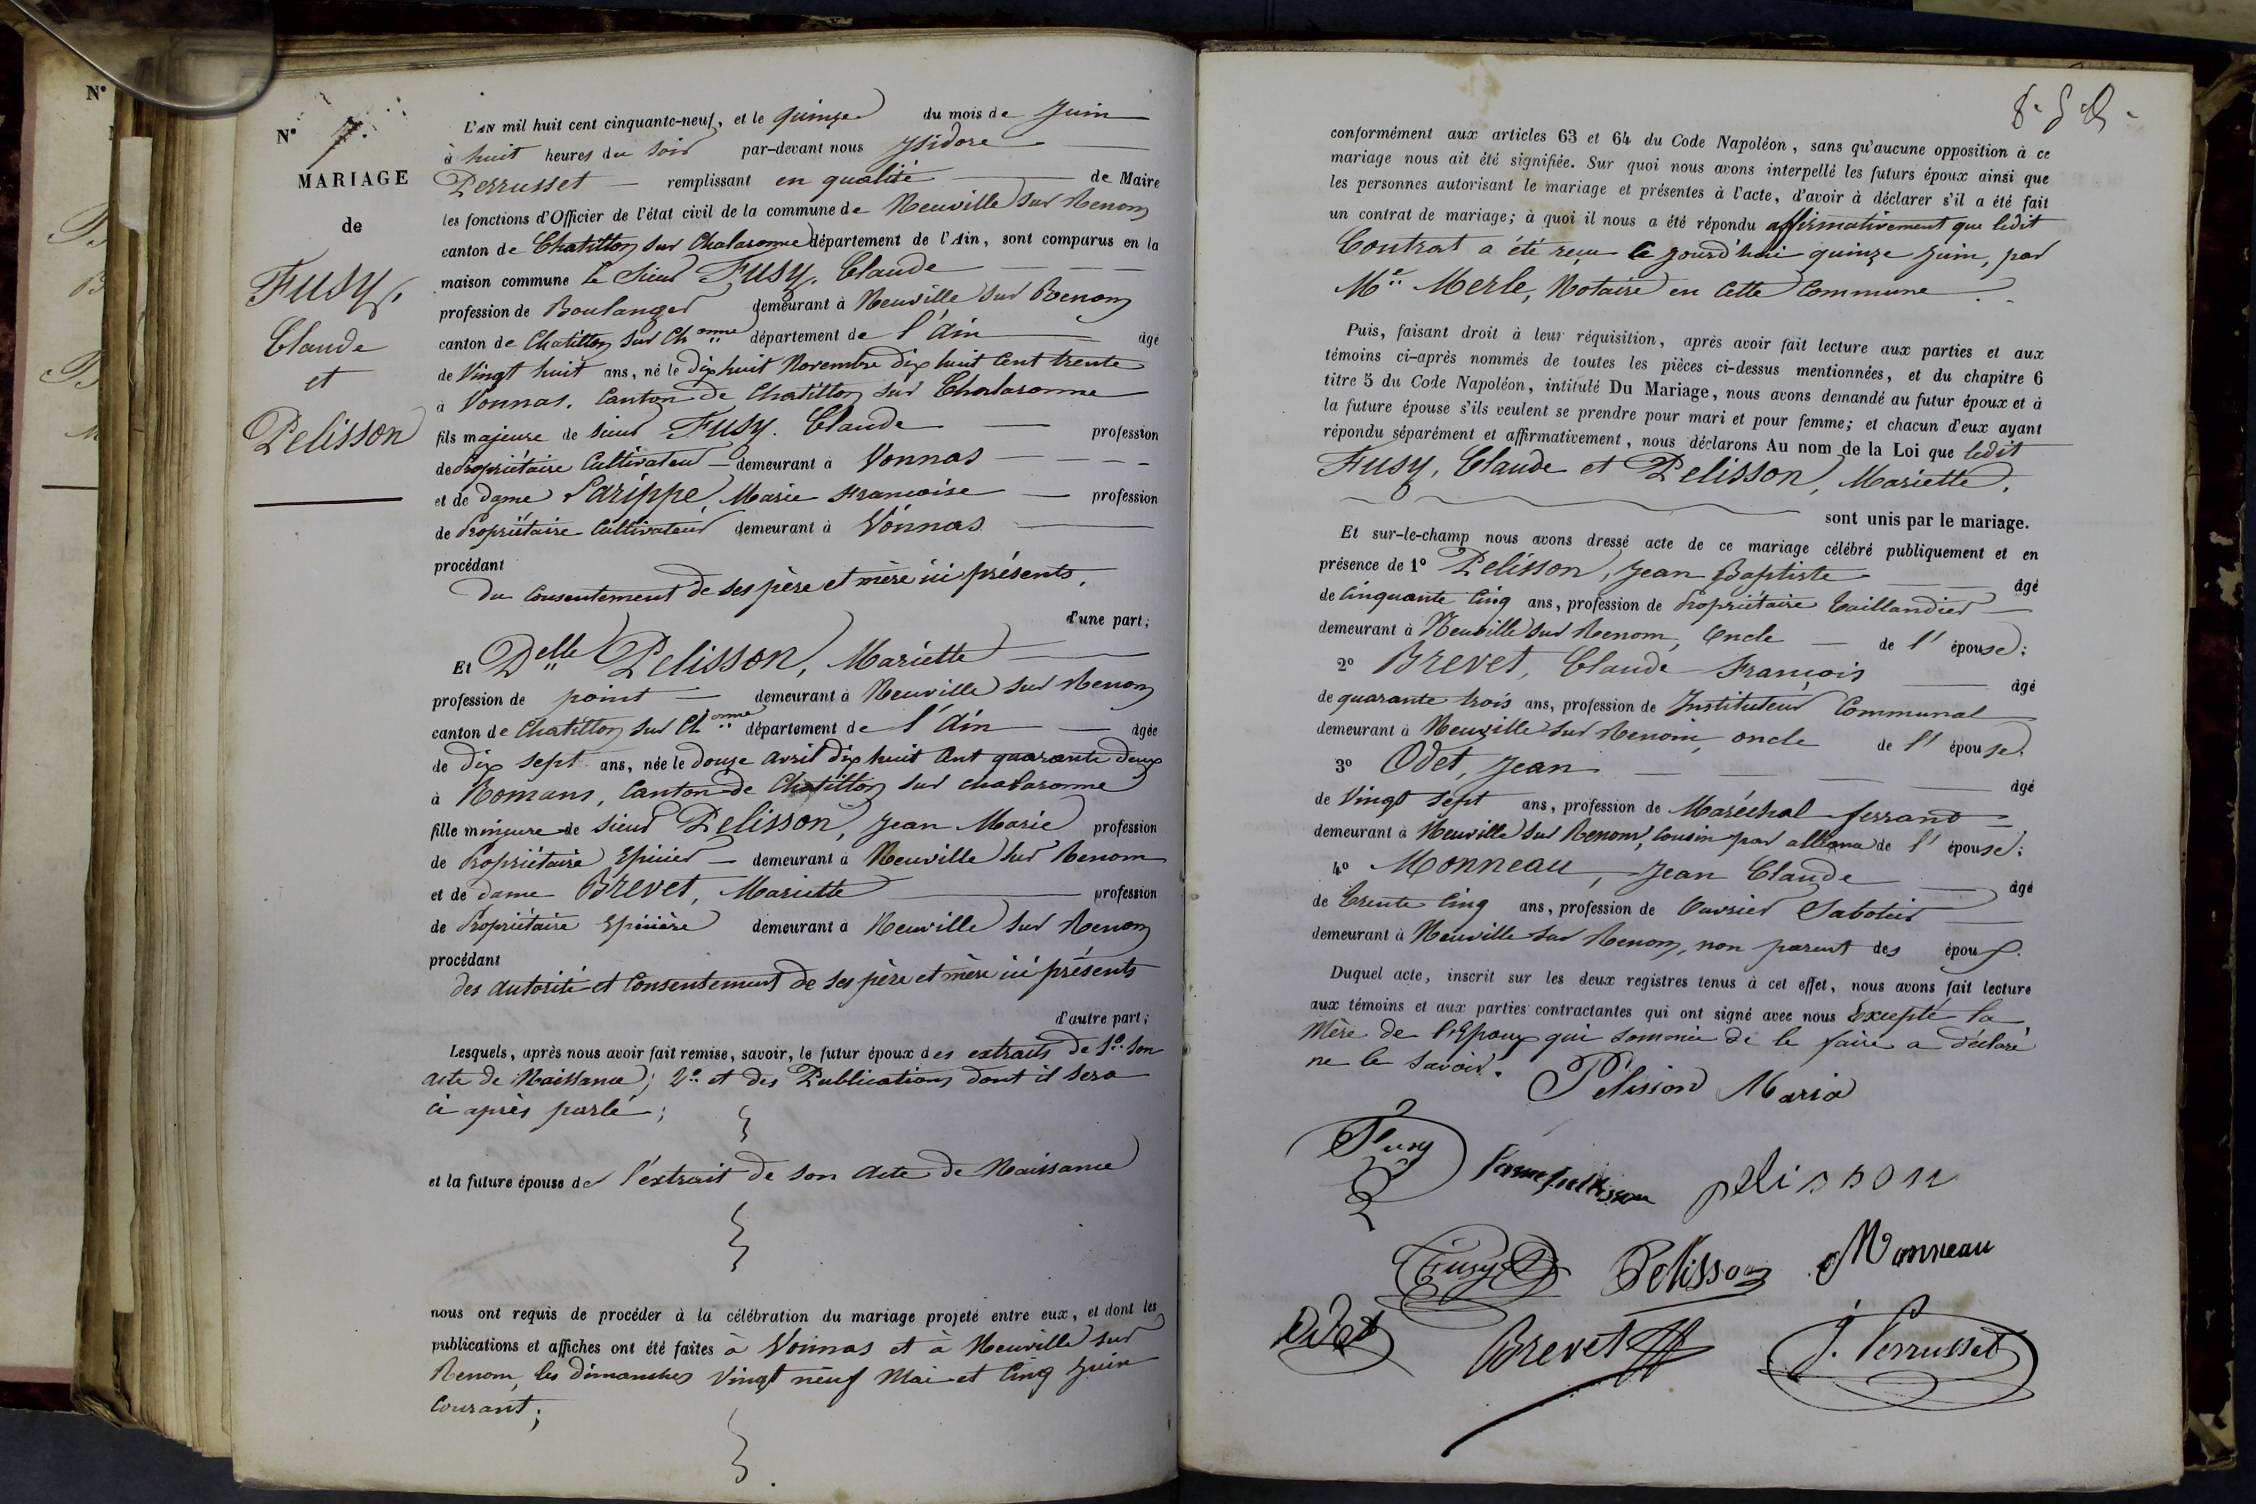 N°
N° 7.
MARIAGE
de
Fusy,
Claude
et
Pelisson
L'AN mil huit cent cinquante-neuf, et le quinze du mois de Juin
à huit heures du soir par-devant nous Ysidore
Perrusset remplissant en qualité de Maire
les fonctions d'Officier de l'état civil de la commune de Neuville sur Renom
canton de Chatillon sur Chalaronne département de l'Ain, sont comparus en la
maison commune Le Sieur Fusy, Claude
profession de Boulanger demeurant à Neuville sur Renom
canton de Chatillon sur Chonne département de l'Ain âgé
de Vingt huit ans, né le Dix huit Novembre dix huit Cent trente
à Vonnas. Canton de Chatillon sur Chalaronne
fils majeure de sieur Fusy. Claude profession
de Propriétaire Cultivateur demeurant à Vonnas
et de dame Parippe, Marie Francoise profession
de Propriétaire Cultivateur demeurant à Vonnas
procédant
du Consentement de ses père et mère ici présents,
d'une part;
Et Delle Pelisson, Mariette
profession de point demeurant à Neuville sur Renom
canton de Chatillon sur Chonne département de l'Ain âgée
de dix sept ans, née le douze avril dix huit Cent quarante deux
à Romans, Canton de Chatillon sur chalaronne
fille mineure de sieur Pelisson, Jean Marie profession
de Propriétaire Epicier demeurant à Neuville sur Renom
et de dame Brevet, Mariette profession
de Propriétaire Epicière demeurant à Neuville sur Renom
procédant
des autorité et Consentement de ses père et mère ici présents
d'autre part;
Lesquels, après nous avoir fait remise, savoir, le futur époux des extraits de 1° son
acte de Naissance; 2° et des Publications dont il sera
ci après parlé;
et la future épouse de l'extrait de son acte de Naissance
nous ont requis de procéder à la célébration du mariage projeté entre eux, et dont les
publications et affiches ont été faites à Vonnas et à Neuville sur
Renom, les dimanches Vingt neuf Mai et Cinq Juin
Courant;
conformément aux articles 63 et 64 du Code Napoléon, sans qu'aucune opposition à ce
mariage nous ait été signifiée. Sur quoi nous avons interpellé les futurs époux ainsi que
les personnes autorisant le mariage et présentes à l'acte, d'avoir à déclarer s'il a été fait
un contrat de mariage; à quoi il nous a été répondu affirmativement que ledit
Contrat a été reçu ce jourd'hui quinze Juin, par
Me Merle, Notaire en Cette Commune.
Puis, faisant droit à leur réquisition, après avoir fait lecture aux parties et aux
témoins ci-après nommés de toutes les pièces ci-dessus mentionnées, et du chapitre 6
titre 5 du Code Napoléon, intitulé Du Mariage, nous avons demandé au futur époux et à
la future épouse s'ils veulent se prendre pour mari et pour femme; et chacun d'eux ayant
répondu séparément et affirmativement, nous déclarons Au nom de la Loi que ledit
Fusy, Claude et Pelisson, Mariette,
sont unis par le mariage.
Et sur-le-champ nous avons dressé acte de ce mariage célébré publiquement et en
présence de 1° Pelisson, Jean Baptiste âgé
de Cinquante Cinq ans, profession de Propriétaire Taillandier
demeurant à Neuville sur Renom, Oncle de l' épouse;
2° Brevet, Claude François âgé
de quarante trois ans, profession de Instituteur Communal
demeurant à Neuville sur Renom, oncle de l' épouse;
3° Odet, Jean âgé
de Vingt sept ans, profession de Maréchal ferrand
demeurant à Neuville sur Renom, Cousin par alliance de l' épouse;
4° Monneau, Jean Claude âgé
de Trente Cinq ans, profession de Ouvrier Sabotier
demeurant à Neuville sur Renom, non parent des époux.
Duquel acte, inscrit sur les deux registres tenus à cet effet, nous avons fait lecture
aux témoins et aux parties contractantes qui ont signé avec nous Excepté la
Mère de l'Epoux qui sommée de le faire a déclaré
ne le savoir.
Pelision Maria
Fusy
pelisson
Fusy
Pelisson
Monneau
Odet
Brevet
J. Perrusset